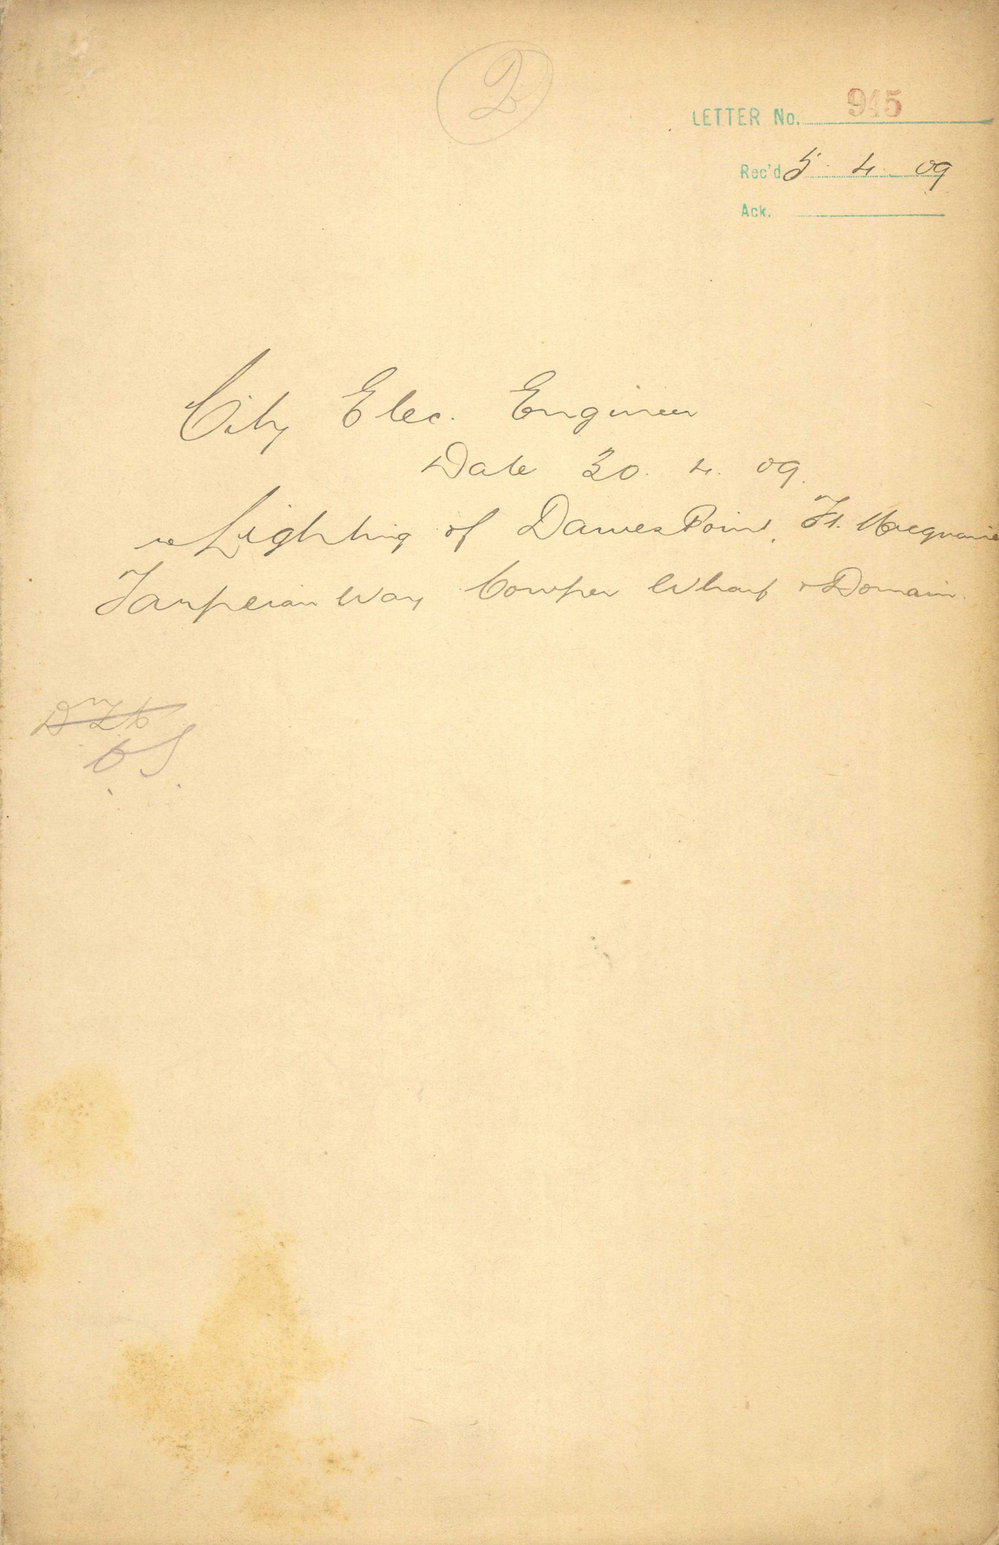 2
LETTER No. 945
Rec'd 5. 4. 09
Ack.
City Elec. Engineer
Date 30. 4. 09.
re Lighting of Dawes Point, Ft. Macquarie
Tarpeian Way Cowper Wharf & Domain.